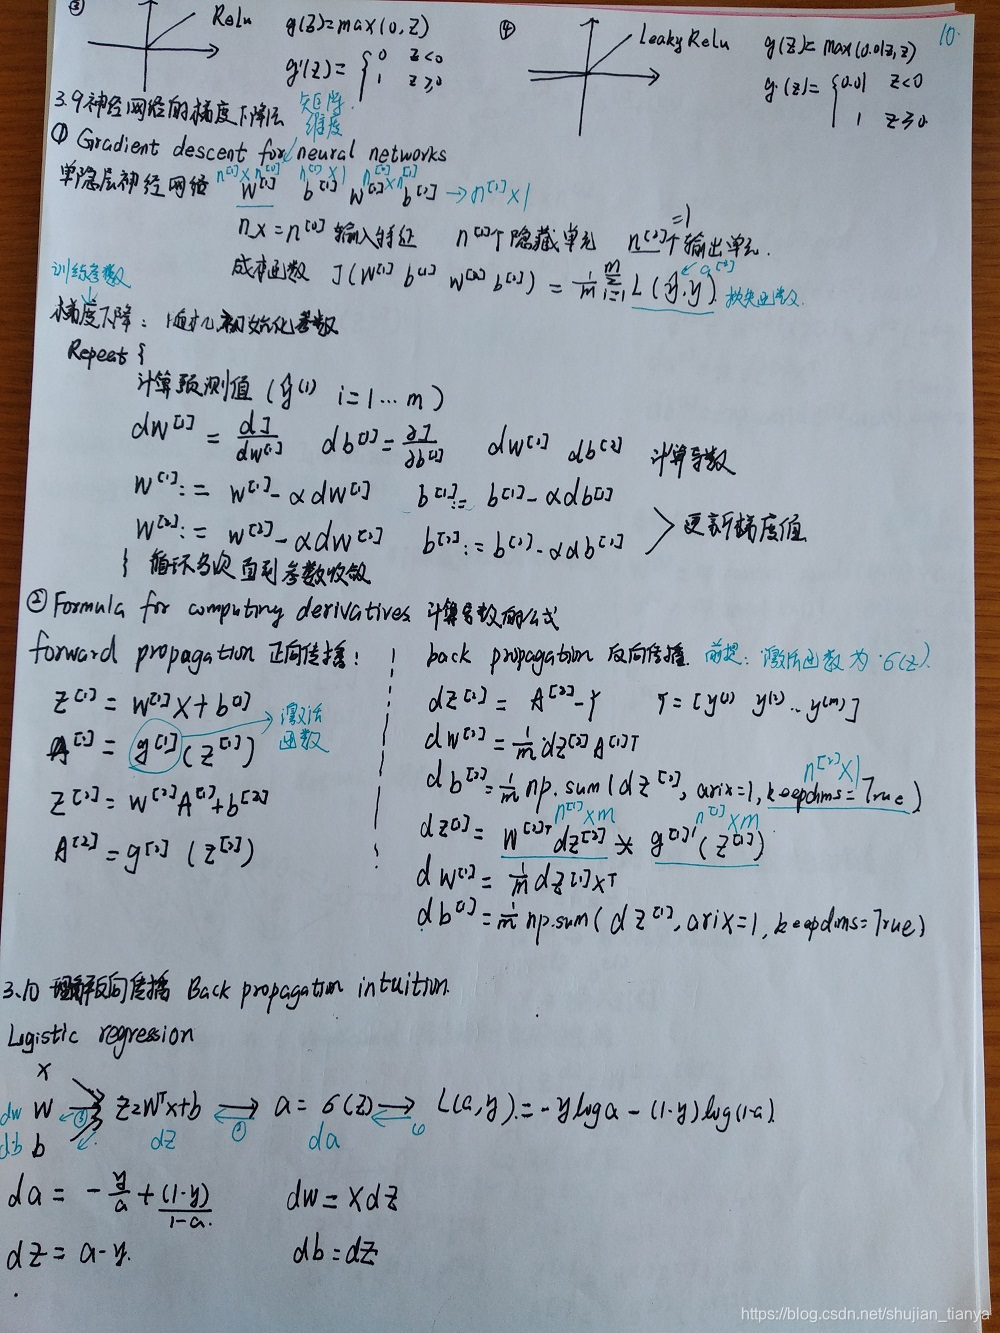 ③ Relu g(z)=max(0,z) ④ Leaky Relu g(z)=max(0.01z,z) 10.
g'(z)={0 z<0 g'(z)={0.01 z<0
1 z≥0 1 z≥0
3.9 神经网络的梯度下降法 矩阵维度
① Gradient descent for neural networks
n^[1]×n^[0] n^[1]×1 n^[2]×n^[1]
单隐层神经网络 W^[1] b^[1] W^[2] b^[2] → n^[2]×1
n_x=n^[0] 输入特征 n^[1]个隐藏单元 n^[2]个输出单元. =1
成本函数 J(W^[1] b^[1] W^[2] b^[2]) = 1/m Σ_{i=1}^m L(ŷ,y) 损失函数. a^[2]
训练参数
梯度下降: 随机初始化参数
Repeat {
计算预测值 (ŷ^(i) i=1…m)
dw^[1] = dJ/dw^[1] db^[1] = ∂J/∂b^[1] dw^[2] db^[2] 计算导数
W^[1]:= W^[1]-αdw^[1] b^[1]:= b^[1]-αdb^[1]
W^[2]:= W^[2]-αdw^[2] b^[2]:= b^[2]-αdb^[2] 更新梯度值
} 循环多次直到参数收敛
② Formula for computing derivatives 计算导数的公式
forward propagation 正向传播:
Z^[1] = W^[1]X+b^[1]
A^[1] = g^[1](Z^[1]) 激活函数
Z^[2] = W^[2]A^[1]+b^[2]
A^[2] = g^[2](Z^[2])
back propagation 反向传播. 前提: 激活函数为 σ(z).
dz^[2] = A^[2]-Y Y=[y^(1) y^(2) … y^(m)]
dw^[2] = 1/m dz^[2]A^[1]T
db^[2] = 1/m np.sum(dz^[2], axix=1, keepdims=True) n^[2]×1
dz^[1] = W^[2]T dz^[2] * g^[1]'(Z^[1]) n^[1]×m n^[1]×m
dw^[1] = 1/m dz^[1]X^T
db^[1] = 1/m np.sum(dz^[1], axix=1, keepdims=True)
3.10 理解反向传播 Back propagation intuition.
Logistic regression
X
dw W ③ z=W^Tx+b → a=σ(z) → L(a,y)=-yloga-(1-y)log(1-a)
db b dz da
da = -y/a + (1-y)/(1-a) dw=xdz
dz = a-y. db=dz
https://blog.csdn.net/shujian_tianya